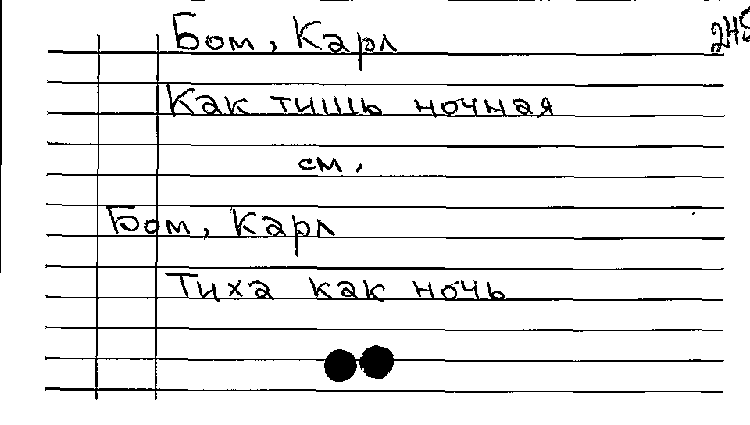 Бом, Карл
245
Как тишь ночная
см.
Бом, Карл
Тиха как ночь